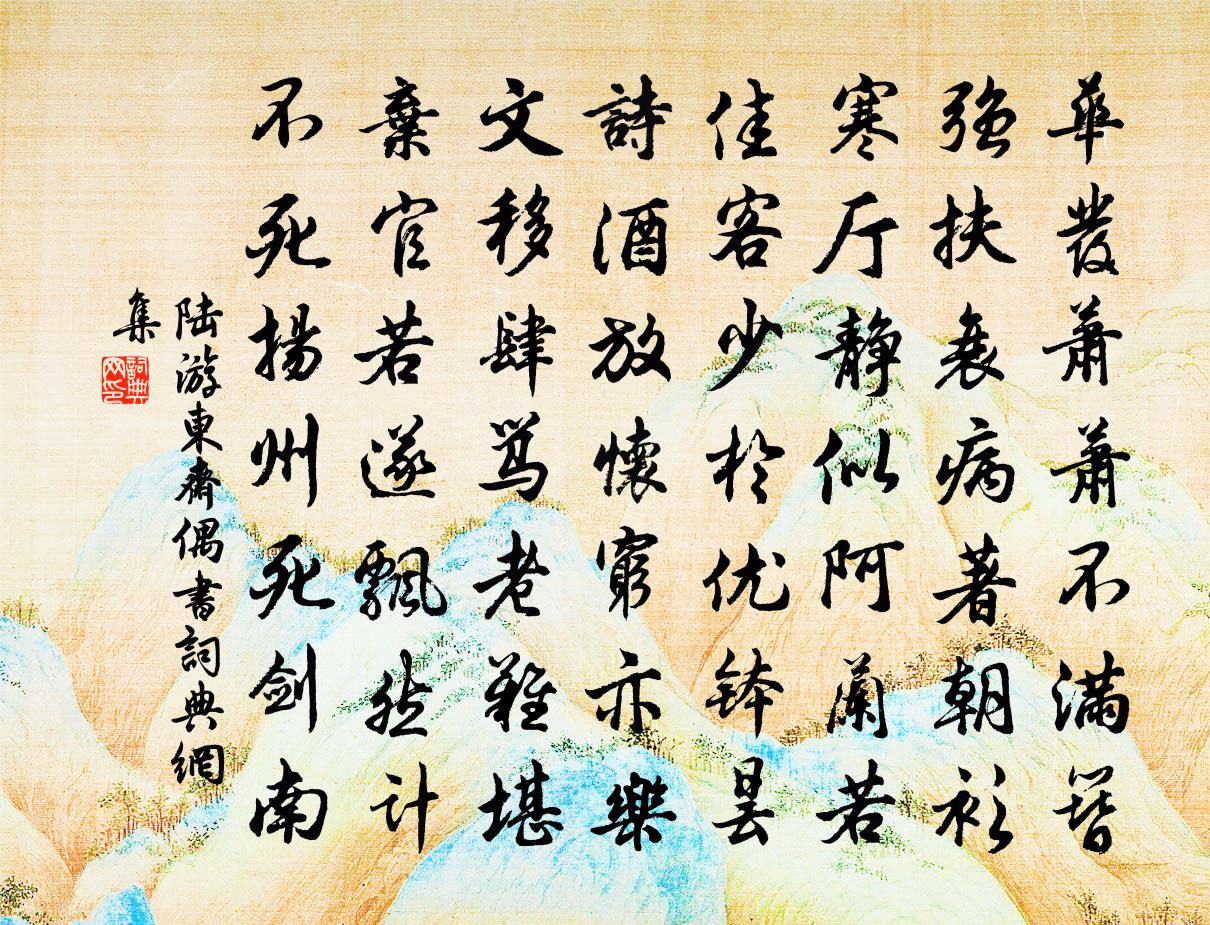 華發蕭蕭不滿簪
强扶衰病著朝衫
寒厅静似阿蘭若
佳客少於优钵昙
詩酒放懷窮亦樂
文移肆骂老難堪
棄官若遂飄然计
不死揚州死剑南
陆游東齋偶書詞典網
集
詞典
网印